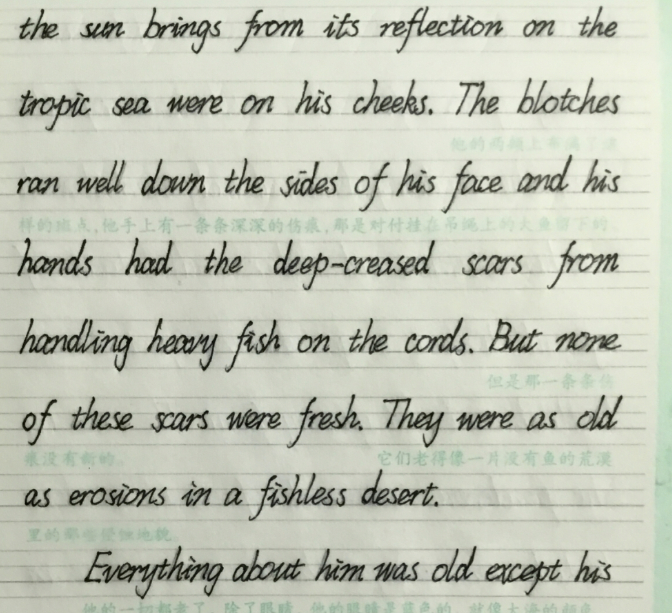 the sun brings from its reflection on the
tropic sea were on his cheeks. The blotches
他的两颊上布满了这
ran well down the sides of his face and his
样的斑点,他手上有一条条深深的伤痕,那是对付挂在吊绳上的大鱼留下的。
hands had the deep-creased scars from
handling heavy fish on the cords. But none
但是那一条条伤
of these scars were fresh. They were as old
痕没有新的。 它们老得像一片没有鱼的荒漠
as erosions in a fishless desert.
里的那些侵蚀地貌。
Everything about him was old except his
他的一切都老了,除了眼睛,他的眼睛是蓝色的,就像大海的颜色